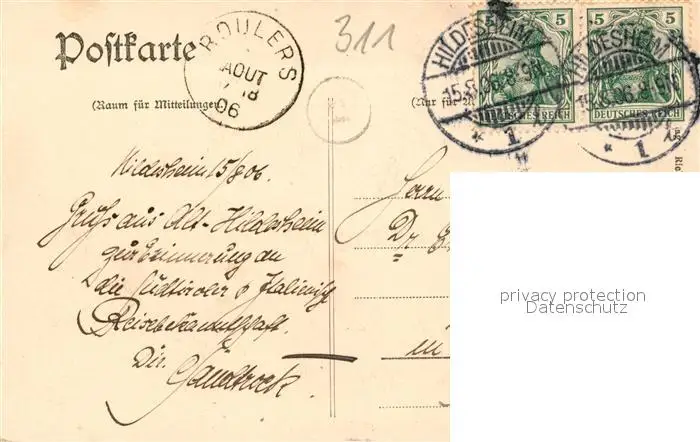 Postkarte
(Raum für Mitteilungen)
ROULERS
AOUT
18
06
311
(Nur für
HILDESHEIM
15.8.06.8-9N.
* 1
5
DEUTSCHES REICH
HILDESHEIM
* 1
5
DEUTSCHES REICH
Hildesheim 15/8 06.
Gruss aus Alt-Hildesheim
zur Erinnerung an
die Südtiroler & Italienische
Reisebekanntschaft.
Dir.
Herrn
Dr
in
privacy protection
Datenschutz